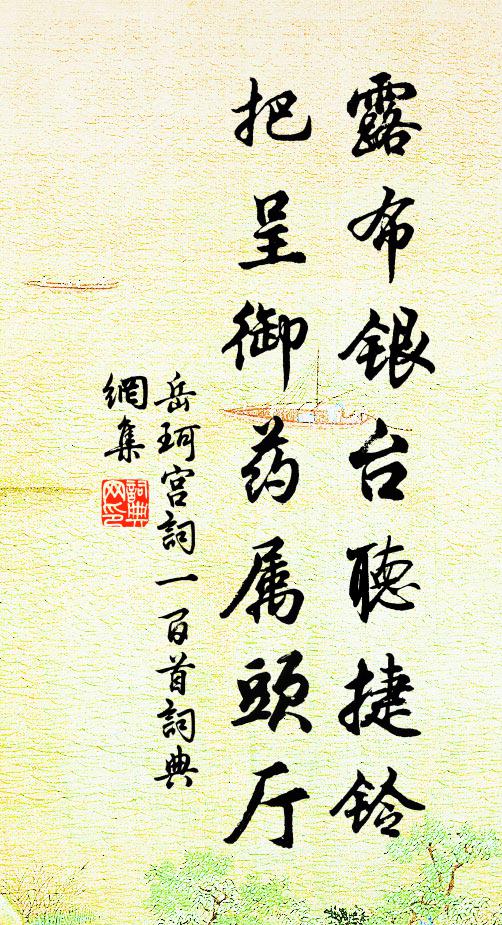 露布银台聽捷铃
把呈御药属頭厅
岳珂宫詞一百首詞典
網集
詞典网印